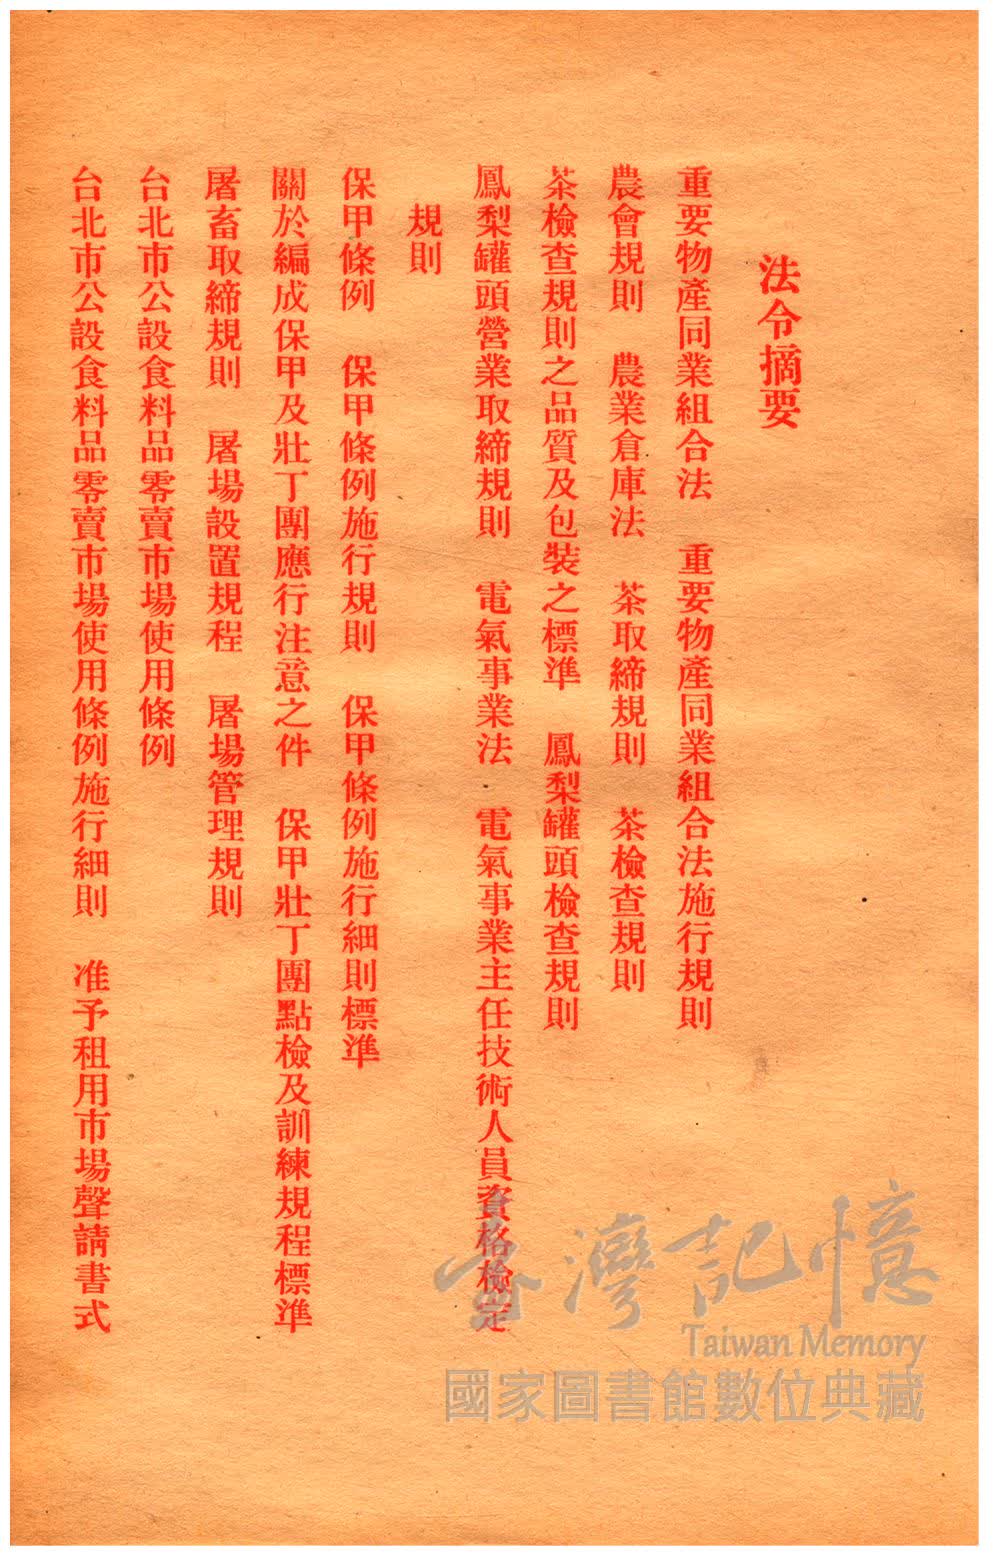 法令摘要
重要物產同業組合法　重要物產同業組合法施行規則
農會規則　農業倉庫法　茶取締規則　茶檢查規則
茶檢查規則之品質及包裝之標準　鳳梨罐頭檢查規則
鳳梨罐頭營業取締規則　電氣事業法　電氣事業主任技術人員資格檢定
規則
保甲條例　保甲條例施行規則　保甲條例施行細則標準
關於編成保甲及壯丁團應行注意之件　保甲壯丁團點檢及訓練規程標準
屠畜取締規則　屠場設置規程　屠場管理規則
台北市公設食料品零賣市場使用條例
台北市公設食料品零賣市場使用條例施行細則　准予租用市場聲請書式
臺灣記憶
Taiwan Memory
國家圖書館數位典藏